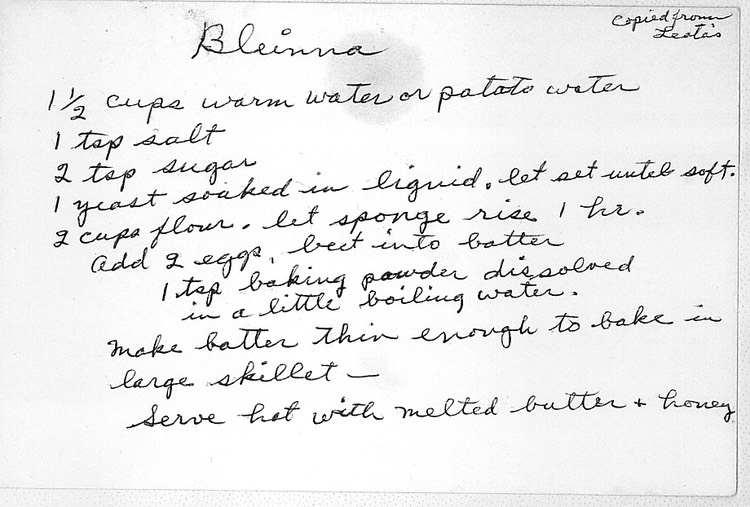 Copied from
Leota's
Bleinna
1 1/2 cups warm water or potato water
1 tsp salt
2 tsp sugar
1 yeast soaked in liquid. let set until soft.
2 cups flour. let sponge rise 1 hr.
Add 2 eggs, beet into batter
1 tsp baking powder dissolved
in a little boiling water.
Make batter thin enough to bake in
large skillet —
Serve hot with melted butter + honey